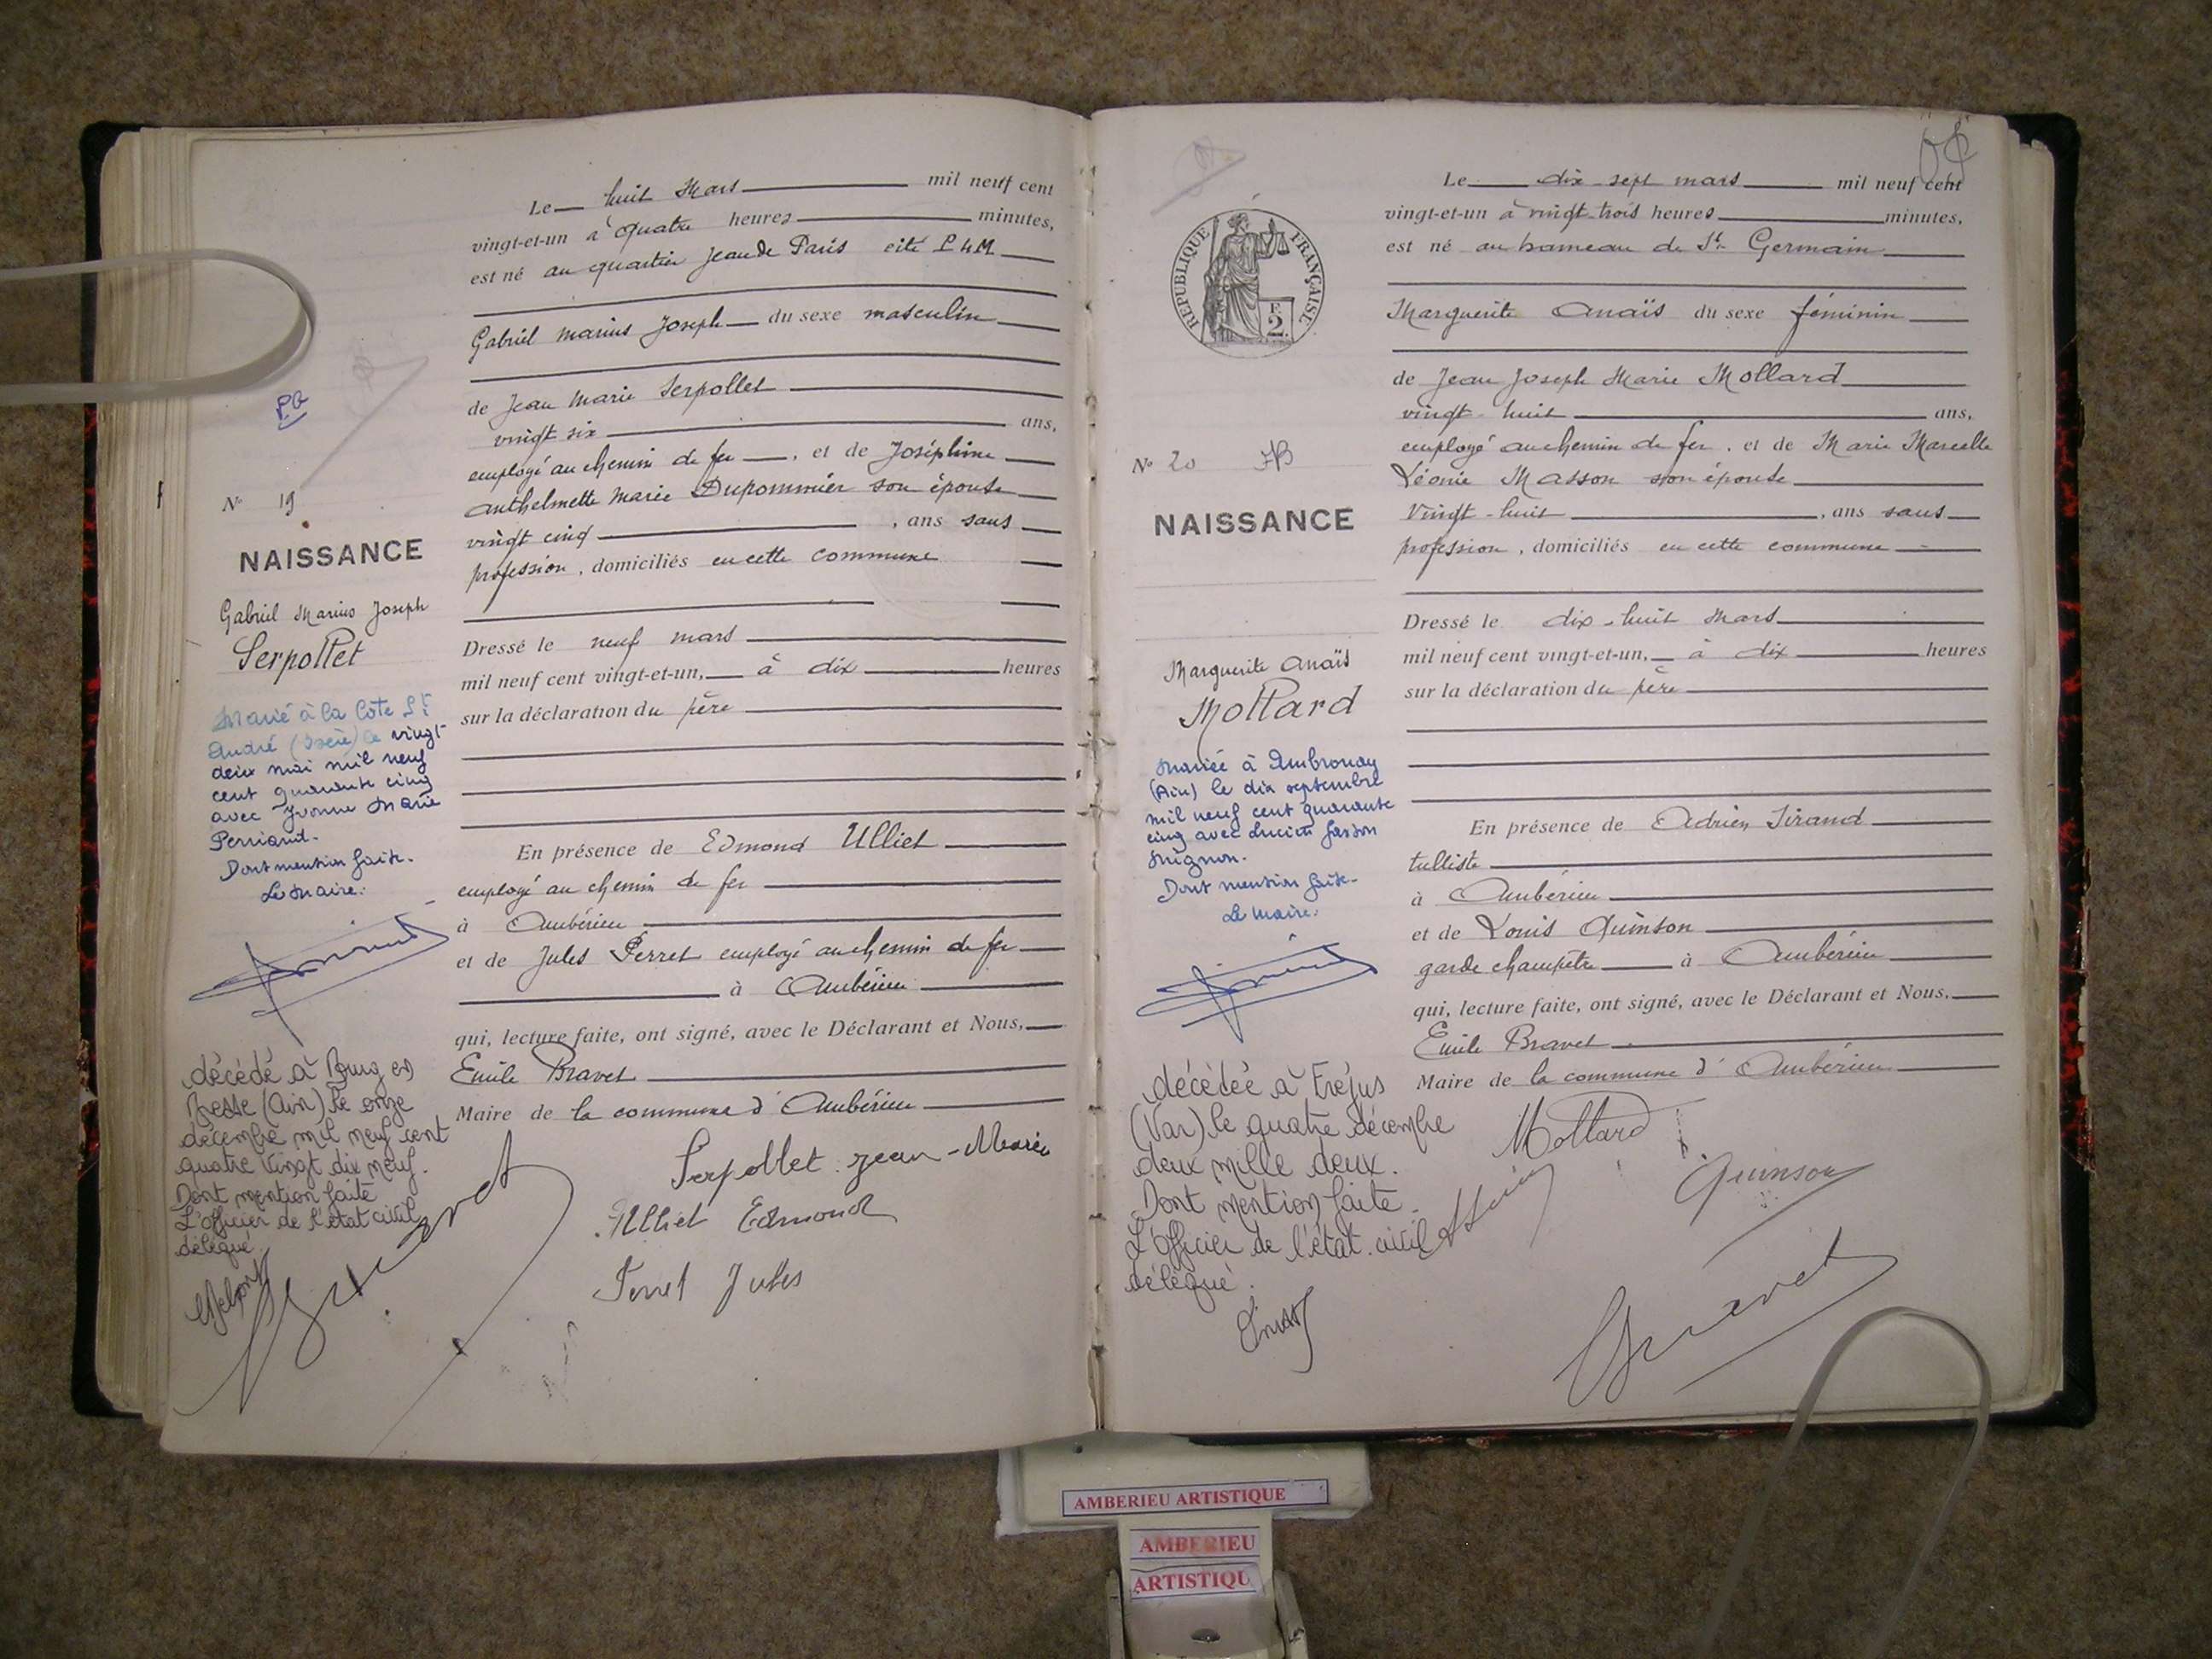 Le huit Mars mil neuf cent
vingt-et-un à quatre heures minutes,
est né au quartier Jean de Paris cité P L M
Gabriel Marius Joseph du sexe masculin
de Jean Marie Serpollet
vingt six ans,
employé au chemin de fer, et de Joséphine
Anthelmette Marie Dupommier son épouse
vingt cinq, ans sans
profession, domiciliés en cette commune
Dressé le neuf mars
mil neuf cent vingt-et-un, à dix heures
sur la déclaration du père
En présence de Edmond Ulliet
employé au chemin de fer
à Ambérieu
et de Jules Perret employé au chemin de fer
à Ambérieu
qui, lecture faite, ont signé, avec le Déclarant et Nous,
Emile Bravet
Maire de la commune d'Ambérieu
Serpollet Jean-Marie
Ulliet Edmond
Perret Jules
N° 19
NAISSANCE
Gabriel Marius Joseph
Serpollet
Marié à la Côte St
André (Isère) le vingt
deux mai mil neuf
cent quarante cinq
avec Yvonne Marie
Dont mention faite.
Le Maire:
décédé à Bourg en
Bresse (Ain) le onze
décembre mil neuf cent
quatre vingt dix neuf.
Dont mention faite
L'officier de l'état civil
délégué.
Le dix-sept mars mil neuf cent
vingt-et-un à vingt-trois heures minutes,
est né au hameau de St Germain
Marguerite Anaïs du sexe féminin
de Jean Joseph Marie Mollard
vingt-huit ans,
employé au chemin de fer, et de Marie Marcelle
Léonie Masson son épouse
Vingt-huit, ans sans
profession, domiciliés en cette commune
Dressé le dix-huit Mars
mil neuf cent vingt-et-un, à dix heures
sur la déclaration du père
En présence de Adrien Tirand
tulliste
à Ambérieu
et de Louis Quinson
garde champêtre à Ambérieu
qui, lecture faite, ont signé, avec le Déclarant et Nous,
Emile Bravet
Maire de la commune d'Ambérieu
Mollard
Quinson
Bravet
REPUBLIQUE FRANÇAISE
F.
2.
N° 20
NAISSANCE
Marguerite Anaïs
Mollard
Mariée à Ambronay
(Ain) le dix septembre
mil neuf cent quarante
cinq avec Lucien
Mignon.
Dont mention faite.
Le Maire:
décédée à Fréjus
(Var) le quatre décembre
deux mille deux.
Dont mention faite.
L'officier de l'état civil
délégué.
AMBERIEU ARTISTIQUE
AMBERIEU
ARTISTIQU